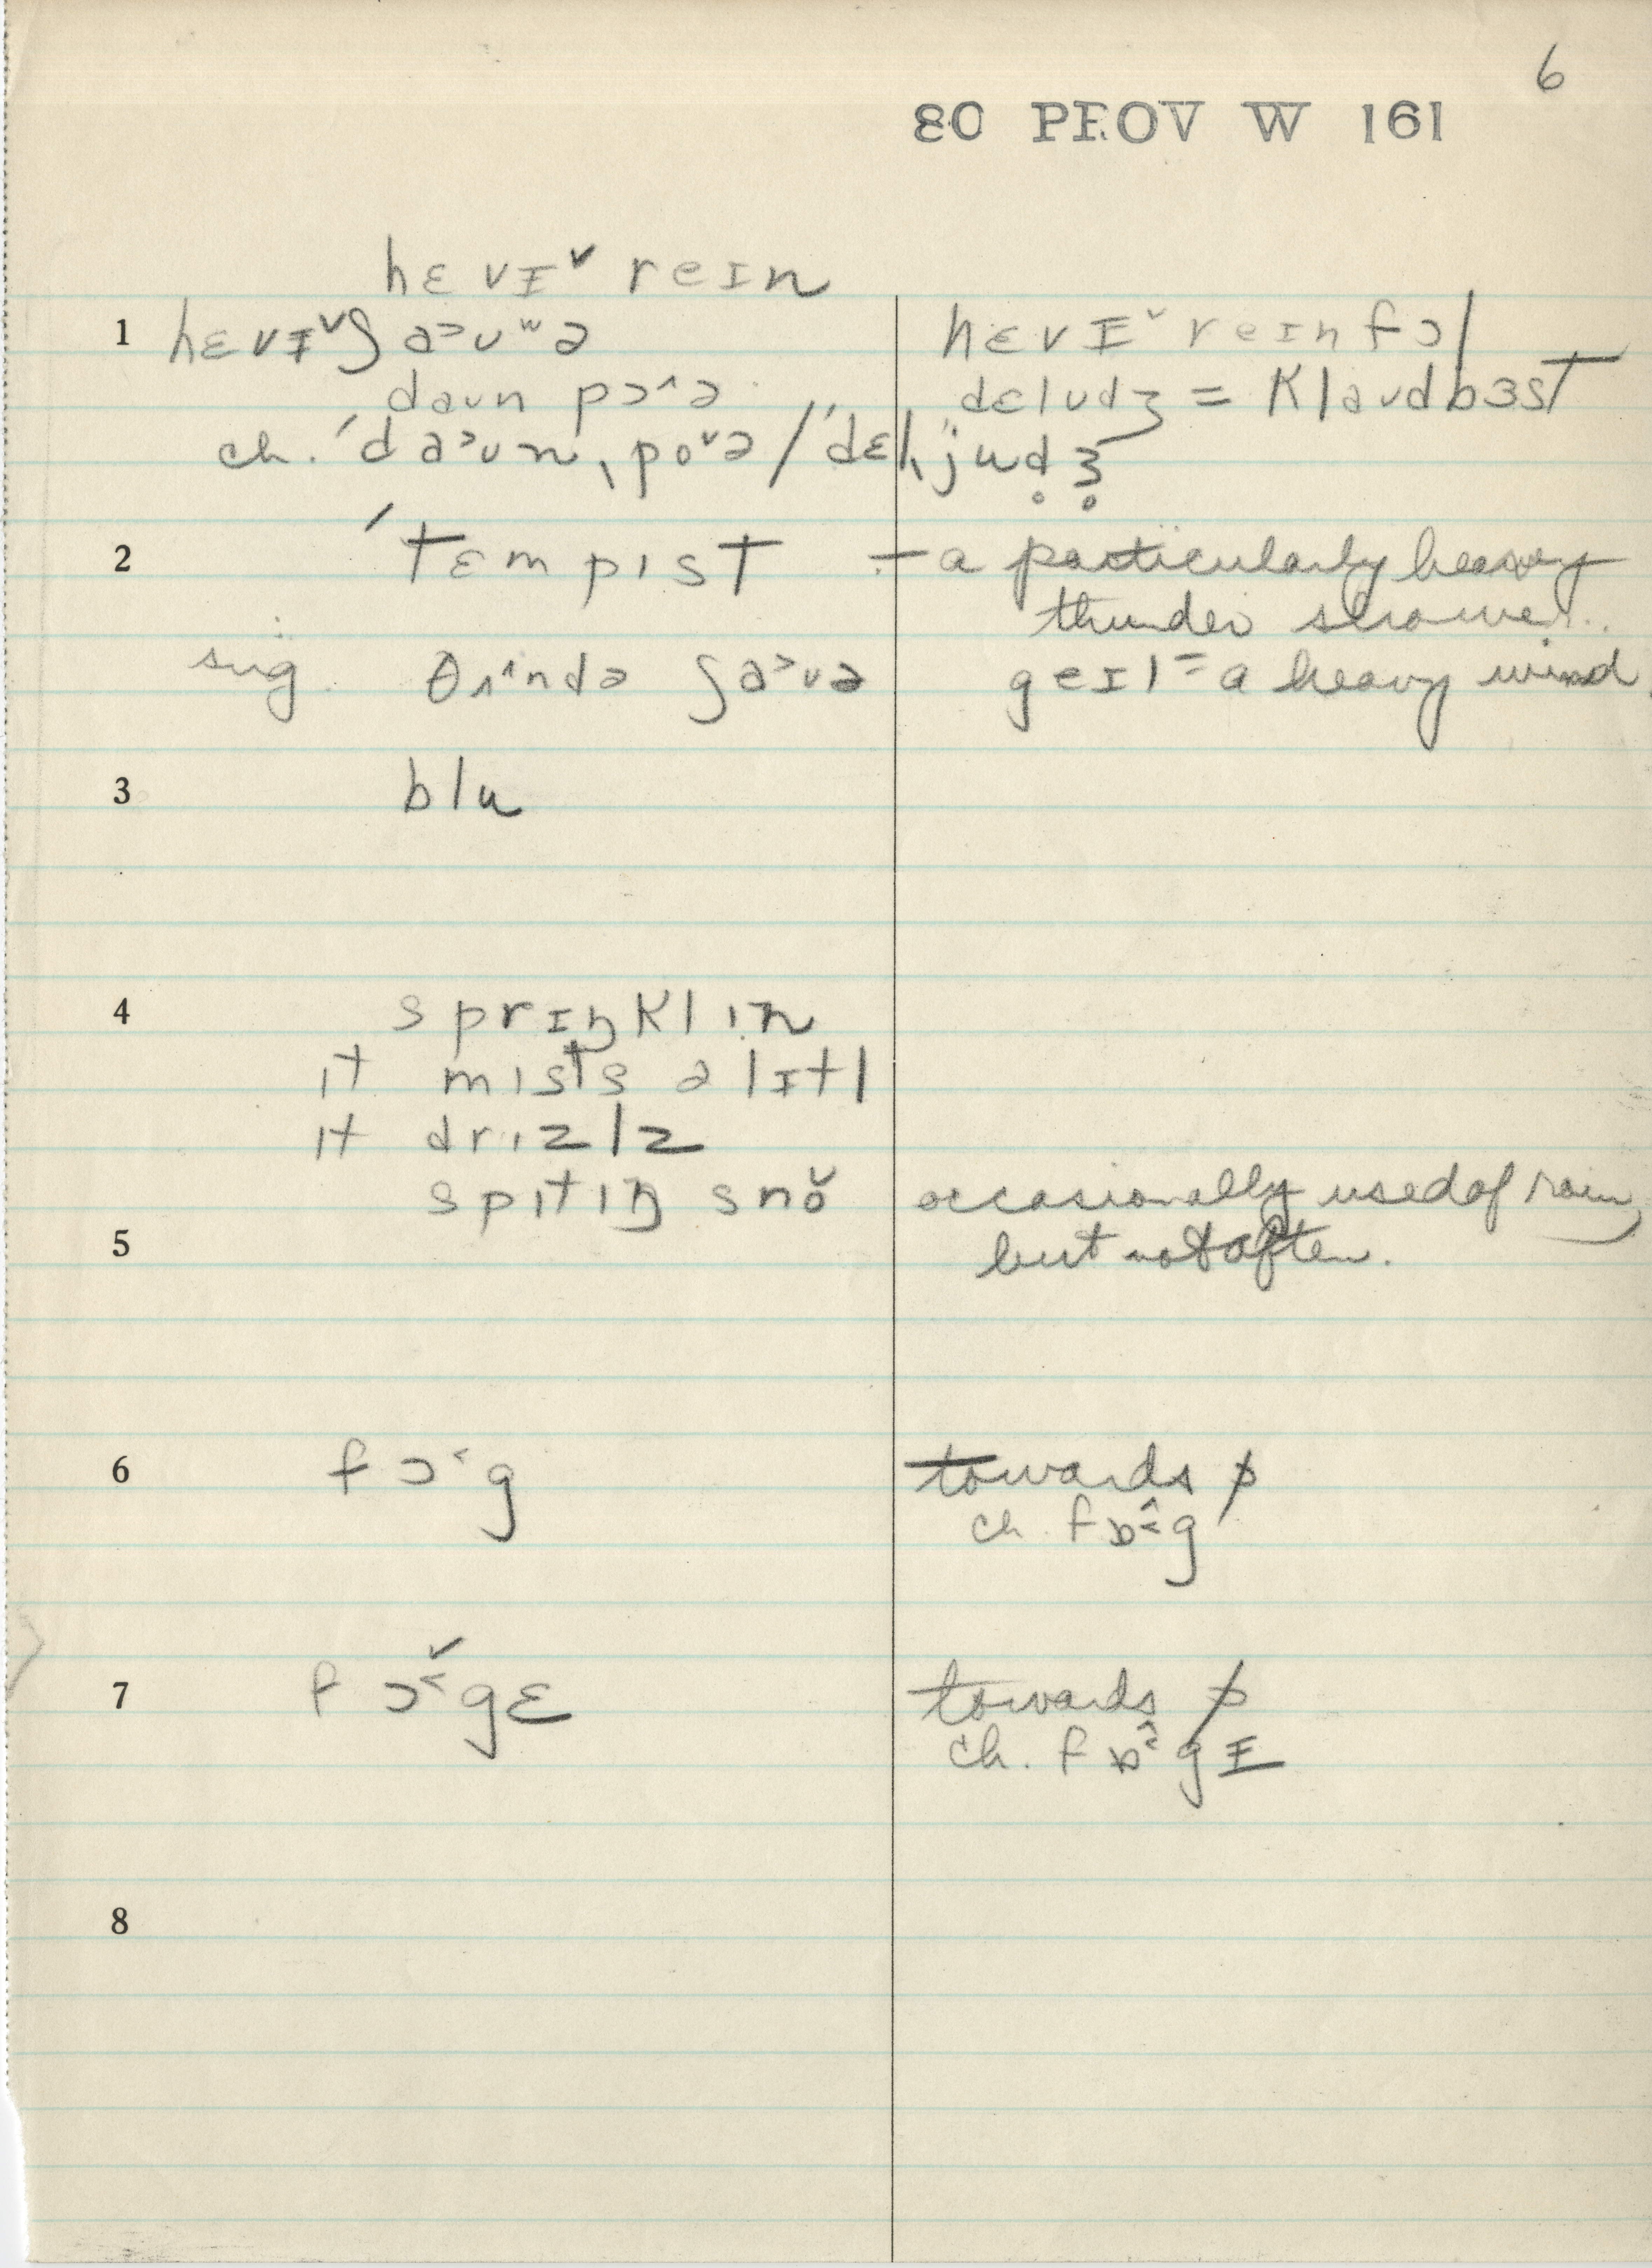 6
80 PROV W 161
hɛvɪ˅ reɪn
1 hɛvɪ˅ʃa˃ʊʷə hɛvɪ˅reɪnfɔl
daʊn pɔ˄ə dɛlʊdʒ = klaʊdbɜst
ch. ˈda˃ʊn ˌpo˅ə / ˈdɛlˌjud̥ʒ̊
2 ˈtɛmpɪst ÷ a particularly heavy
thunder shower.
sug. θʌ˄ndə ʃa˃ʊə geɪl = a heavy wind.
3 blu
4 sprɪŋklɪn
ɪt mɪsts ə lɪtl
ɪt drɪzlz
spɪtɪŋ sno˅ occasionally used of rain,
5 but not often.
6 fɔ˂g towards ɒ
ch. fɒ˂˄g
7 fɔ˂˅gɛ towards ɒ
ch. fɒ˂˄gɪ
8